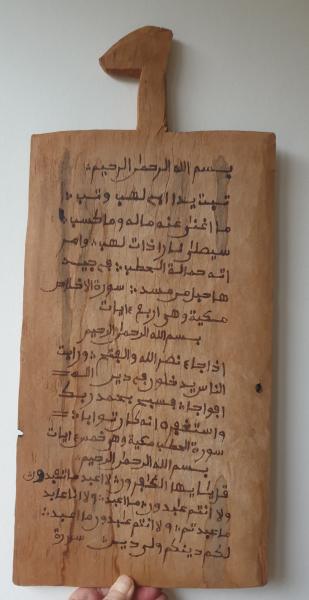 بسم الله الرحمن الرحيم
تبت يدا ابى لهب وتب
ما اغنى عنه ماله وما كسب
سيصلى نارا ذات لهب وامر
اته حمالة الحطب فى جيد
ها حبل من مسد سورة الاخلاص
مكية وهى اربع ءايات
بسم الله الرحمن الرحيم
اذا جاء نصر الله والفتح ورايت
الناس يدخلون فى دين الله
افواجا فسبح بحمد ربك
واستغفره انه كان توابا
سورة الحطب مكية وهى خمس ءايات
بسم الله الرحمن الرحيم
قل يايها الكافرون لا اعبد ما تعبدون
ولا انتم عابدون ما اعبد ولا انا عابد
ما عبدتم ولا انتم عبدون ما اعبد
لكم دينكم ولى دين سورة